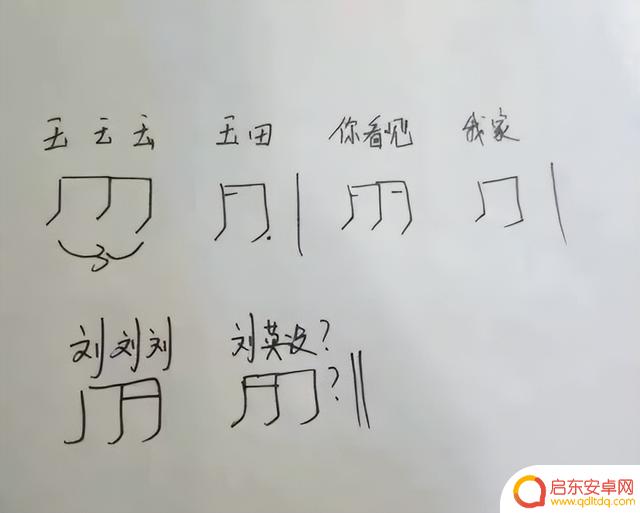 玉 玉 玉 玉田 你看见 我家
3
刘刘刘 刘英没?
?
启东安卓网
www.qdltdq.com